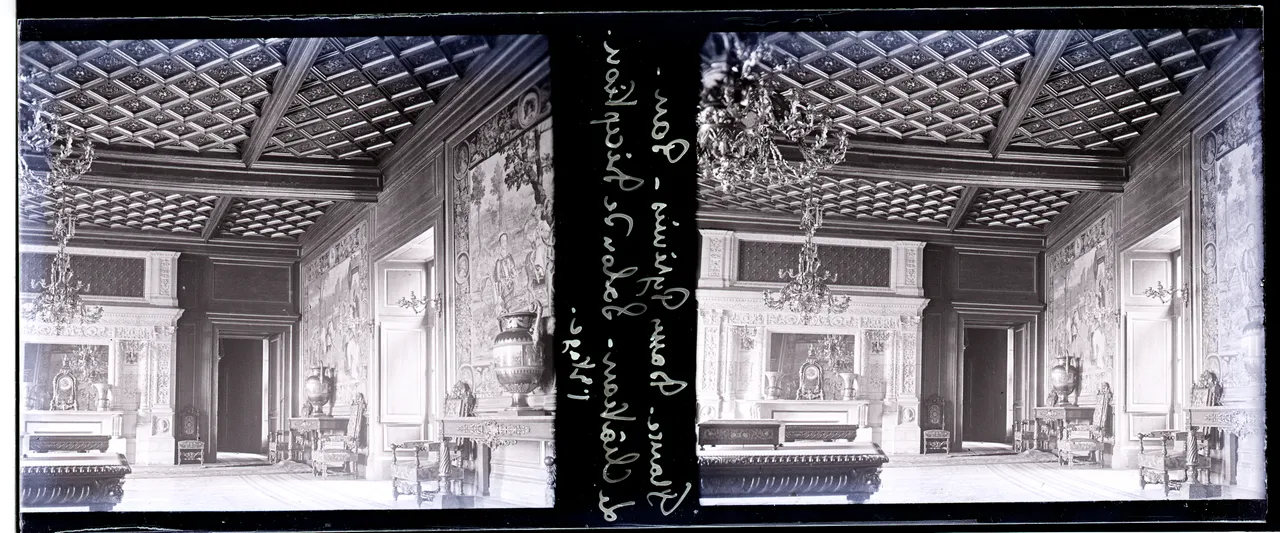 France. Basses Pyrénées - Pau -
Le Château - Salon de Réception.
1er étage.